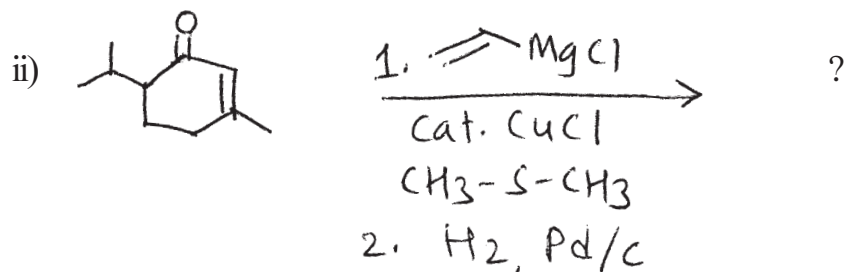 ii)
O
1. MgCl
?
Cat. CuCl
CH3-S-CH3
2. H2, Pd/C